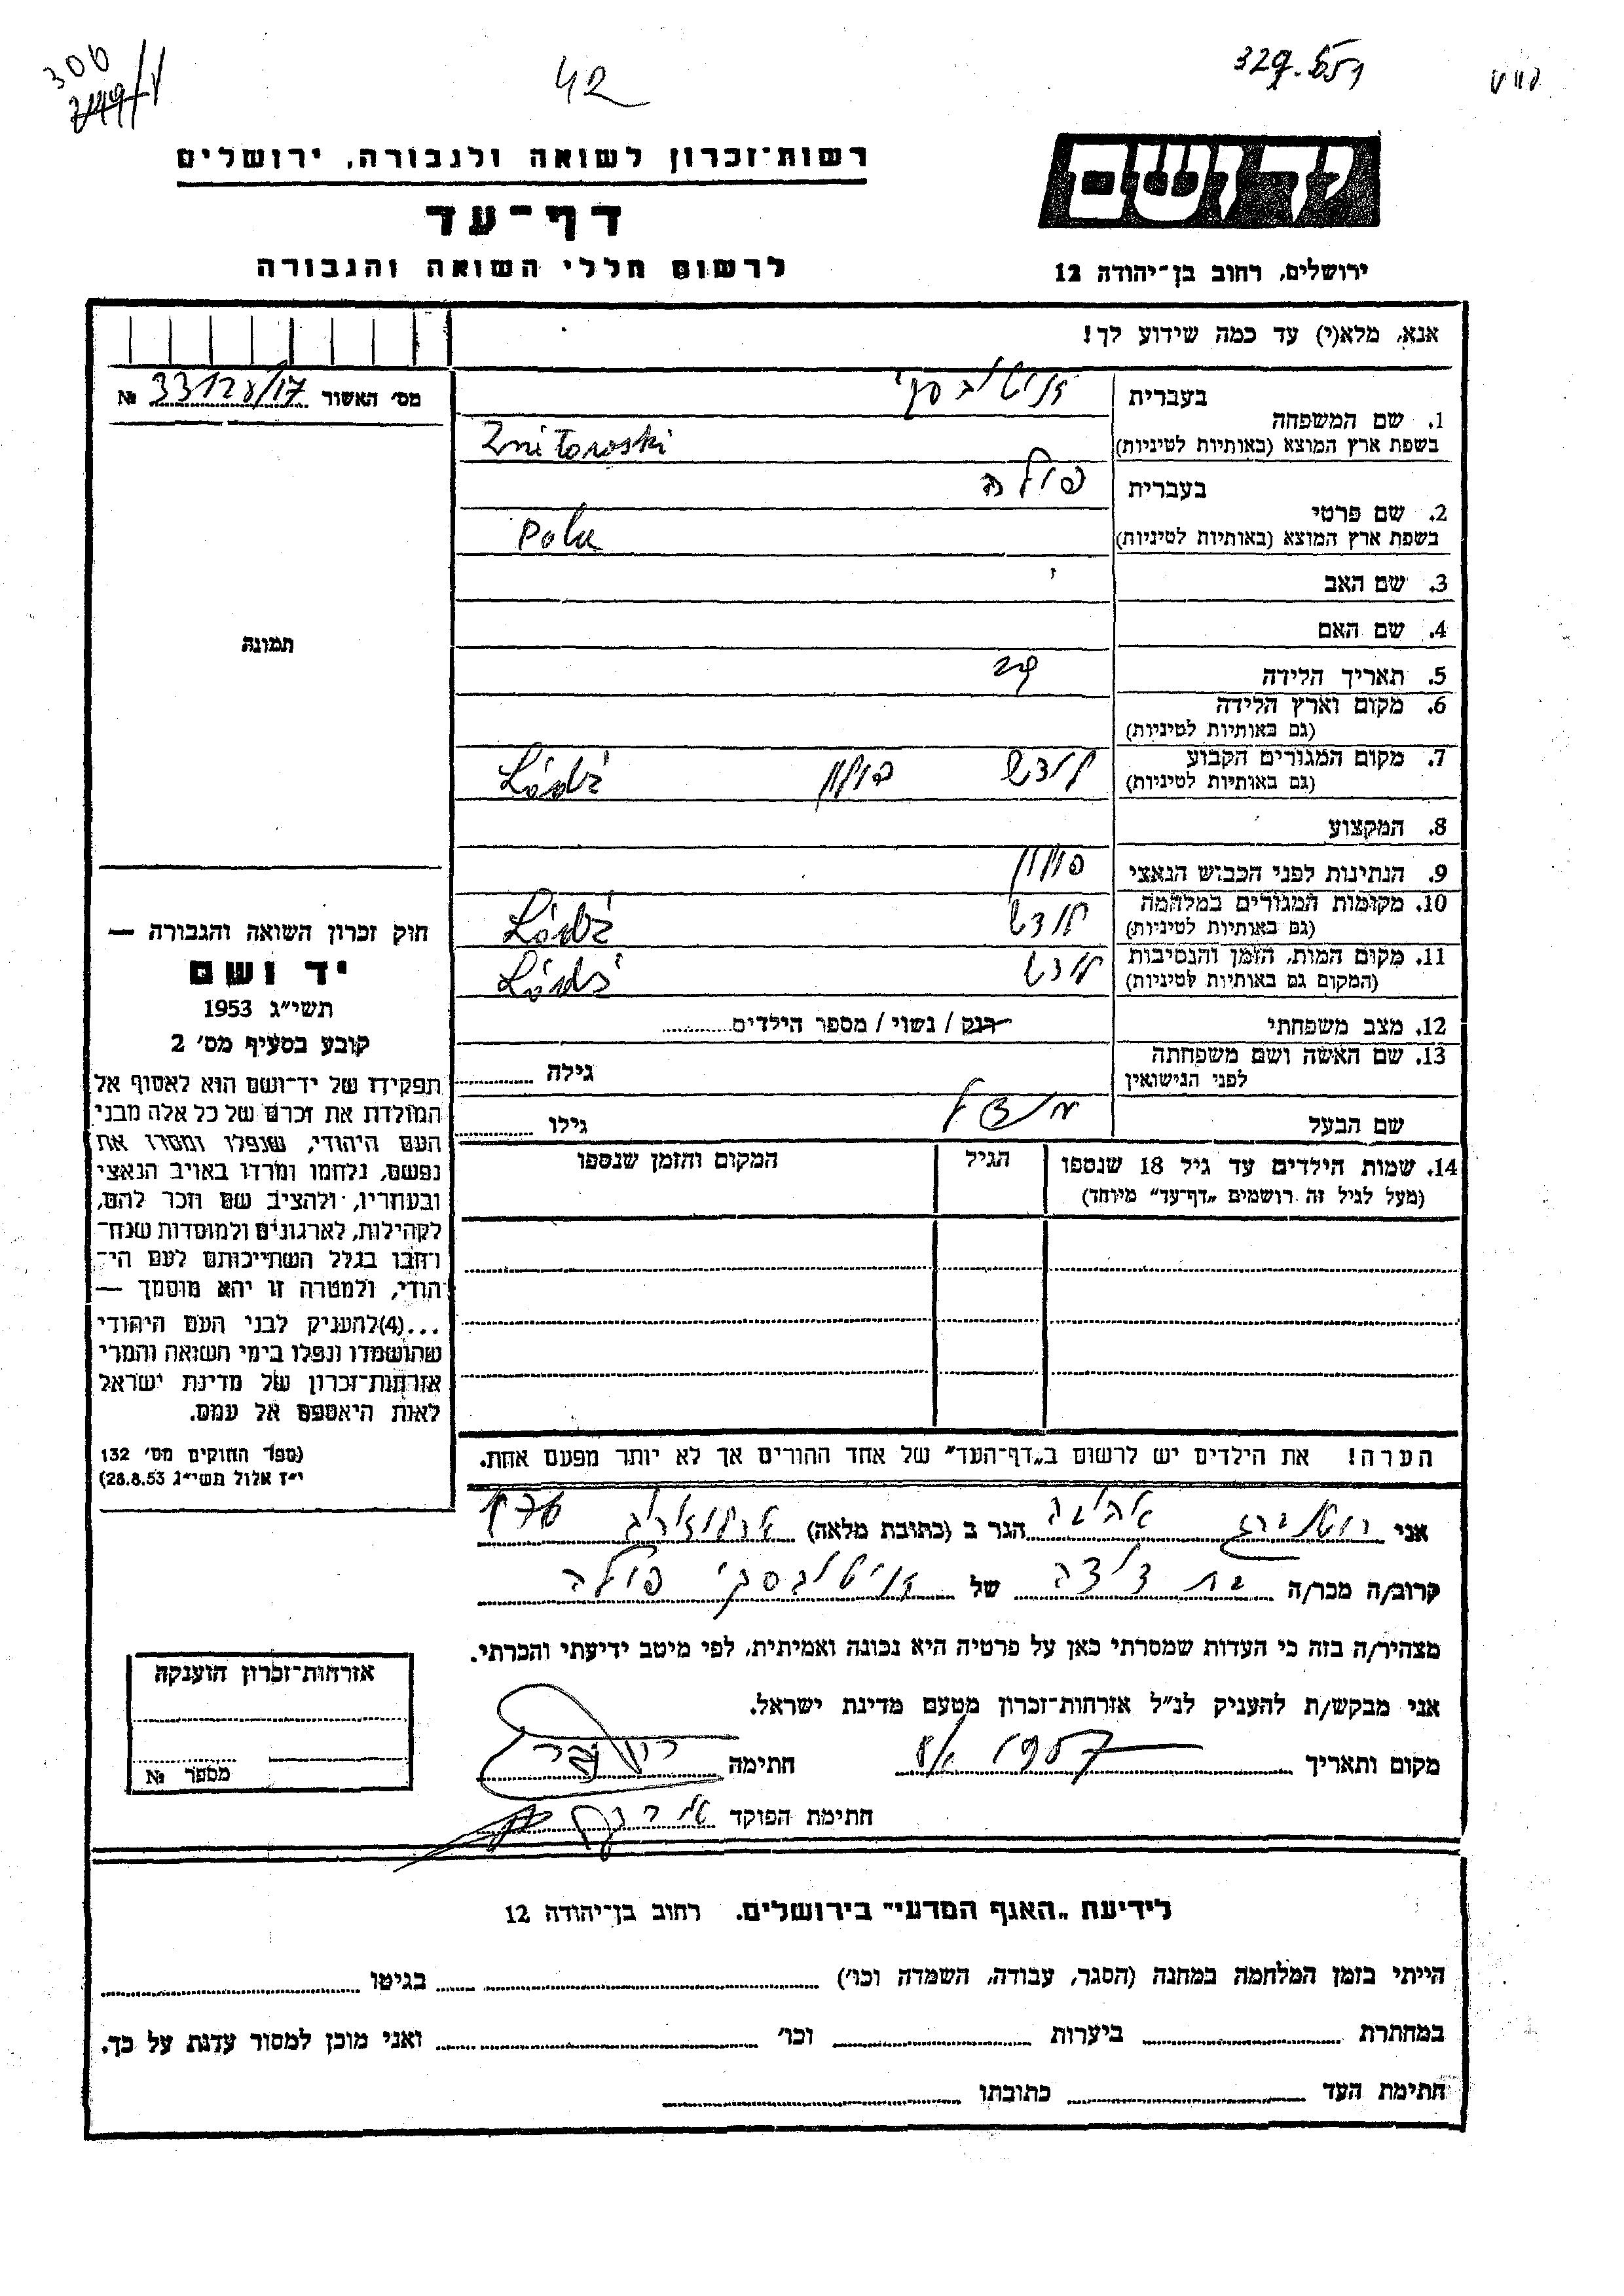 300
42
329.651
רשות־זכרון לשואה ולגבורה, ירושלים
יד ושם
דף־עד
לרשום חללי השואה והגבורה
ירושלים, רחוב בן־יהודה 12
אנא, מלא(י) עד כמה שידוע לך!
מס׳ האשור № 33128/17
1. שם המשפחה
בעברית
בשפת ארץ המוצא (באותיות לטיניות) Znitowski
2. שם פרטי
בעברית פולה
בשפת ארץ המוצא (באותיות לטיניות) Pola
3. שם האב
4. שם האם
תמונה
5. תאריך הלידה
6. מקום וארץ הלידה
(גם באותיות לטיניות)
7. מקום המגורים הקבוע לודש פולין Łódź
(גם באותיות לטיניות)
8. המקצוע
9. הנתינות לפני הכבוש הנאצי פולין
10. מקומות המגורים במלחמה לודש Łódź
(גם באותיות לטיניות)
11. מקום המות, הזמן והנסיבות לודש Łódź
(המקום גם באותיות לטיניות)
12. מצב משפחתי רווק / נשוי / מספר הילדים
13. שם האשה ושם משפחתה
לפני הנישואין
גילה
שם הבעל
גילו
14. שמות הילדים עד גיל 18 שנספו
(מעל לגיל זה רושמים „דף־עד” מיוחד)
הגיל
המקום והזמן שנספו
חוק זכרון השואה והגבורה —
יד ושם
תשי״ג 1953
קובע בסעיף מס׳ 2
תפקידו של יד־ושם הוא לאסוף אל
המולדת את זכרם של כל אלה מבני
העם היהודי, שנפלו ומסרו את
נפשם, נלחמו ומרדו באויב הנאצי
ובעוזריו, ולהציב שם וזכר להם,
לקהילות, לארגונים ולמוסדות שנח־
רבו בגלל השתייכותם לעם הי־
הודי, ולמטרה זו יהא מוסמך —
...(4)להעניק לבני העם היהודי
שהושמדו ונפלו בימי השואה והמרי
אזרחות־זכרון של מדינת ישראל
לאות היאספם אל עמם.
(ספר החוקים מס׳ 132
י״ז אלול תשי״ג 28.8.53)
הערה! את הילדים יש לרשום ב„דף־העד” של אחד ההורים אך לא יותר מפעם אחת.
אני רוטברג הגר ב (כתובת מלאה)
קרוב/ה מכר/ה בת דודה של זניטובסקי פולה
מצהיר/ה בזה כי העדות שמסרתי כאן על פרטיה היא נכונה ואמיתית, לפי מיטב ידיעתי והכרתי.
אני מבקש/ת להעניק לנ״ל אזרחות־זכרון מטעם מדינת ישראל.
מקום ותאריך 1957
חתימה
חתימת הפוקד
אזרחות־זכרון הוענקה
מספר №
לידיעת „האגף המדעי” בירושלים. רחוב בן־יהודה 12
הייתי בזמן המלחמה במחנה (הסגר, עבודה, השמדה וכו׳) בגיטו
במחתרת ביערות וכו׳ ואני מוכן למסור עדות על כך.
חתימת העד כתובתו